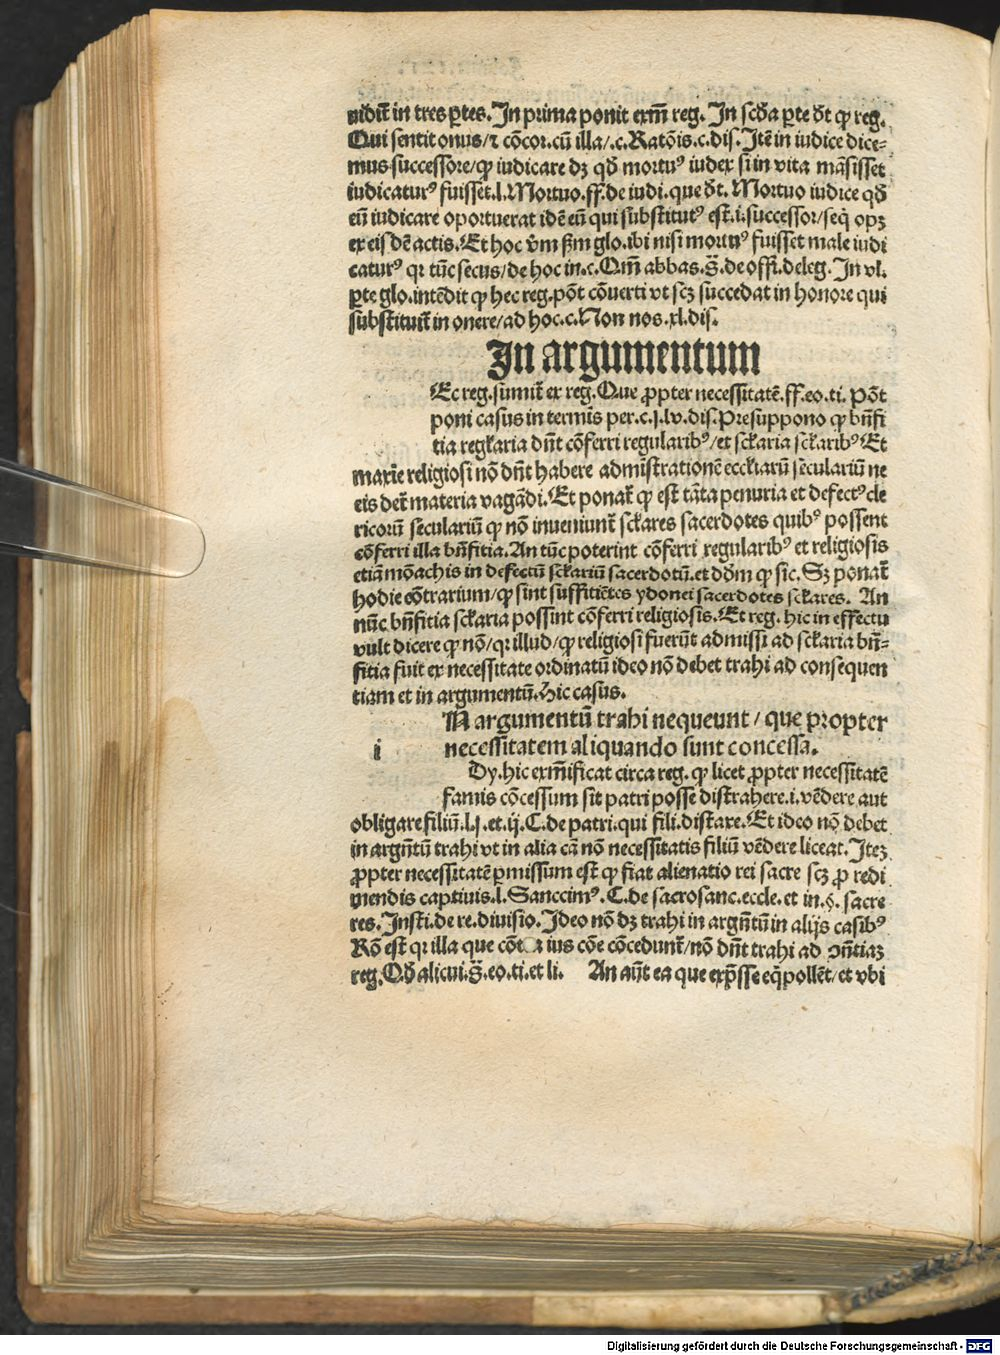 uidit̃ in tres ꝑtes. In prima ponit exm̃ reg. In scḋa ꝑte ḋt ꝙ reg.
Qui sentit onus/ ⁊ cõcor. cũ illa/.c. Ratõis.c. dis. Itẽ in iudice dice-
mus successore/ꝙ iudicare dꝫ qḋ mortuꝰ iudex si in vita mãsisset
iudicaturꝰ fuisset.l. Mortuo.ff. de iudi. que ḋt. Mortuo iudice qḋ
eũ iudicare oportuerat idẽ eũ qui substitutꝰ est.i. successor/seq̃ opꝫ
ex eisdẽ actis. Et hoc v̇m ẜm glo. ibi nisi mortuꝰ fuisset male iudi
caturꝰ qꝛ tũc secus/de hoc in.c. Qm̃ abbas. S̃. de offi. deleg. In vl.
ꝑte glo. intẽdit ꝙ hec reg. põt cõuerti vt scꝫ succedat in honore qui
substituit̃ in onere/ad hoc.c. Non nos. xl. dis.
In argumentum
Ec reg. sumit̃ ex reg. Que ꝓpter necessitatẽ.ff. eo. ti. põt
poni casus in termĩs per.c.j.lv.dis. Presuppono ꝙ bñfi
tia regl̃aria dñt cõferri regularibꝰ/et scl̃aria scl̃aribꝰ Et
maxĩe religiosi nõ dñt habere admĩstrationẽ eccl̃iarũ sẽculariũ ne
eis det̃ materia vagãdi. Et ponat̃ ꝙ est tãta penuria et defectꝰ cle
ricorũ seculariũ ꝙ nõ inueniunt̃ scl̃ares sacerdotes quibꝰ possent
cõferri illa bñfitia. An tũc poterint cõferri regularibꝰ et religiosis
etiã mõachis in defectũ scl̃ariũ sacerdotũ. et ḋḋm ꝙ sic. Sꝫ ponat̃
hodie cõtrarium/ꝙ sint suffitiẽtes ydonei sacerdotes scl̃ares. An
nũc bñfitia scl̃aria possint cõferri religiosis. Et reg. hic in effectu
vult dicere ꝙ nõ/qꝛ illud/ꝙ religiosi fuerũt admissi ad scl̃aria bñ-
fitia fuit ex necessitate ordinatũ ideo nõ debet trahi ad consequen
tiam et in argumentũ. hic casus.
i N argumentũ trahi nequeunt / que propter
necessitatem aliquando sunt concessa.
Dy. hic exm̃ificat circa reg. ꝙ licet ꝓpter necessitatẽ
famis cõcessum sit patri posse distrahere.i. vẽdere aut
obligare filiũ.l.j. et.ij. C. de patri. qui fili. distare. Et ideo nõ debet
in argñtũ trahi vt in alia cã nõ necessitatis filiũ vẽdere liceat. Iteꝫ
ꝓpter necessitatẽ ꝑmissum est ꝙ fiat alienatio rei sacre scꝫ ꝓ redi
mendis captiuis.l. Sanccimꝰ. C. de sacrosanc. eccle. et in.§. sacre
res. Insti. de re. diuisio. Ideo nõ dꝫ trahi in argñtũ in alijs casibꝰ
Rõ est qꝛ illa que ius cõe cõcedunt̃/nõ dñt trahi ad ꝯñtiaꝫ
reg. Qḋ alicui. S̃. eo. ti. et li. An aũt ea que exp̃sse eq̃pollẽt/et vbi
Digitalisierung gefördert durch die Deutsche Forschungsgemeinschaft - DFG